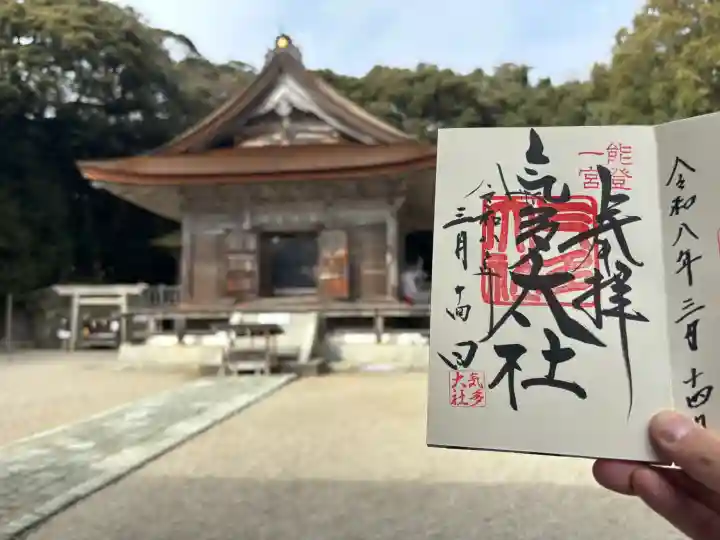 令和八年三月十四日
能登
一宮
奉拝
氣多大社
令和八年
三月十四日
氣多
大社